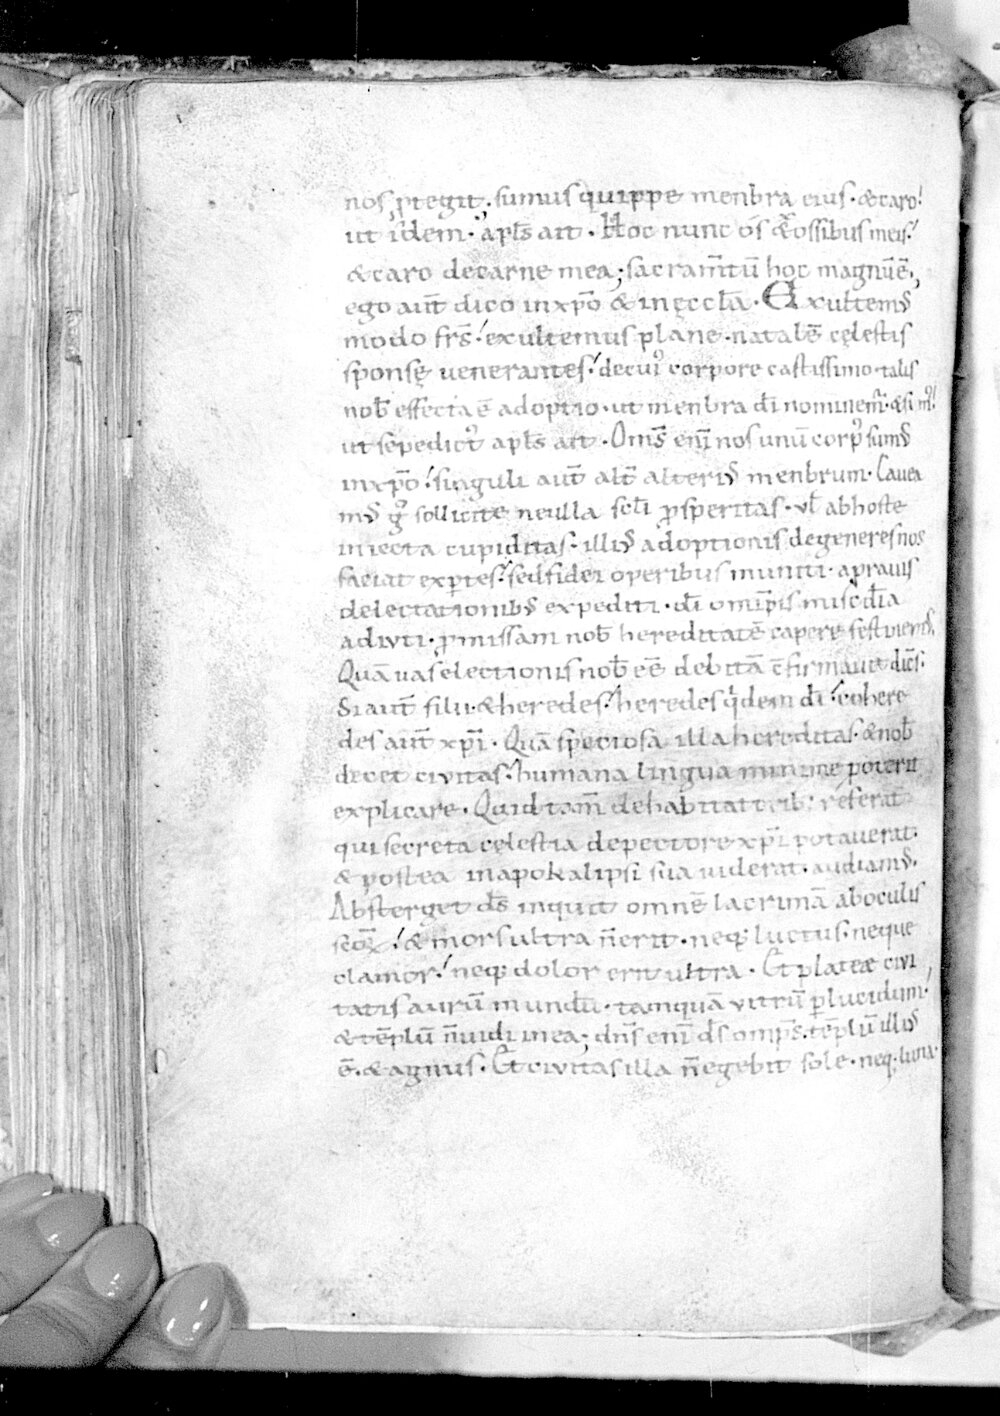 nos ꝓtegit; sumus quippe menbra eius· & caro!
ut idem· apl̅s ait · Hoc nunc os ex ossibus meis!
& caro de carne mea; sacram̅tu̅ hoc magnu̅ e̅,
ego aut̅ dico in xp̅o & in ęccl̅a · Exultem᷒
modo frs̅! exultemus plane · natale̅ cęlestis
sponsę venerantes! de cui᷒ corpore castissimo · talis
nob̅ effecta e̅ adoptio · ut menbra di̅ nominem̅ · & sim᷒!
ut sepedict᷒ apl̅s ait · Om̅s eni̅ nos unu̅ corp᷒ sum᷒
in xp̅o! singuli aut̅ alt̅ alteri᷒ menbrum · Cauea
m᷒ g̊ sollicite ne ulla scl̅i ꝓsperitas · vl̅ ab hoste
iniecta cupiditas · illi᷒ adoptionis degeneres nos
faciat exꝑtes! sed fidei operibus muniti · a prauis
delectationib᷒ expediti · di̅ omip̅tis miscd̅ia
adiuti · ꝓmissam nob̅ hereditate̅ capere festinem᷒.
Qua̅ uas electionis nob̅ ee̅ debita̅ c̅firmauit dic̅s·
Si aut̅ filii · & heredes! heredes qͥdem di̅! cohere
des aut̅ xp̅i · Qua̅ speciosa illa hereditas · & nob̅
decet civitas! humana lingua minime poterit
explicare · Quid tam̅ de habitatorib: referat
qui secreta cęlestia de pectore xp̅i potauerat·
& postea in apokalipsi sua viderat · audiam᷒.
Absterget ds̅ inquit omne̅ lacrima̅ ab oculis
seoꝝ! & mors ultra n̅ erit · neq; luctus · neque
clamor! neq; dolor erit ultra · Et plateæ civi
tatis auru̅ mundu̅ · tamqua̅ vitru̅ ꝑlucidum·
& te̅plu̅ n̅ uidi in ea; dn̅s eni̅ ds̅ omp̅s · te̅plu̅ illi᷒
e̅ · & agnus · Et civitas illa n̅ egebit sole · neq; luna·